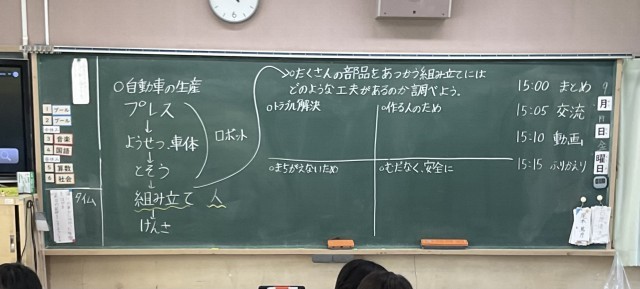 ○自動車の生産
プレス
↓
ようせつ、車体
↓
とそう
↓
組み立て 人
↓
けんさ
ロボット
○たくさんの部品をあつかう組み立てには
どのような工夫があるのか調べよう。
○トラブル解決
○作る人のため
○まちがえないため
○むだなく、安全に
15:00 まとめ
15:05 交流
15:10 動画
15:15 ふりかえり
1 プール
2 プール
3 音楽
4 国語
5 算数
6 社会
タイム
9
月
日
金
曜日